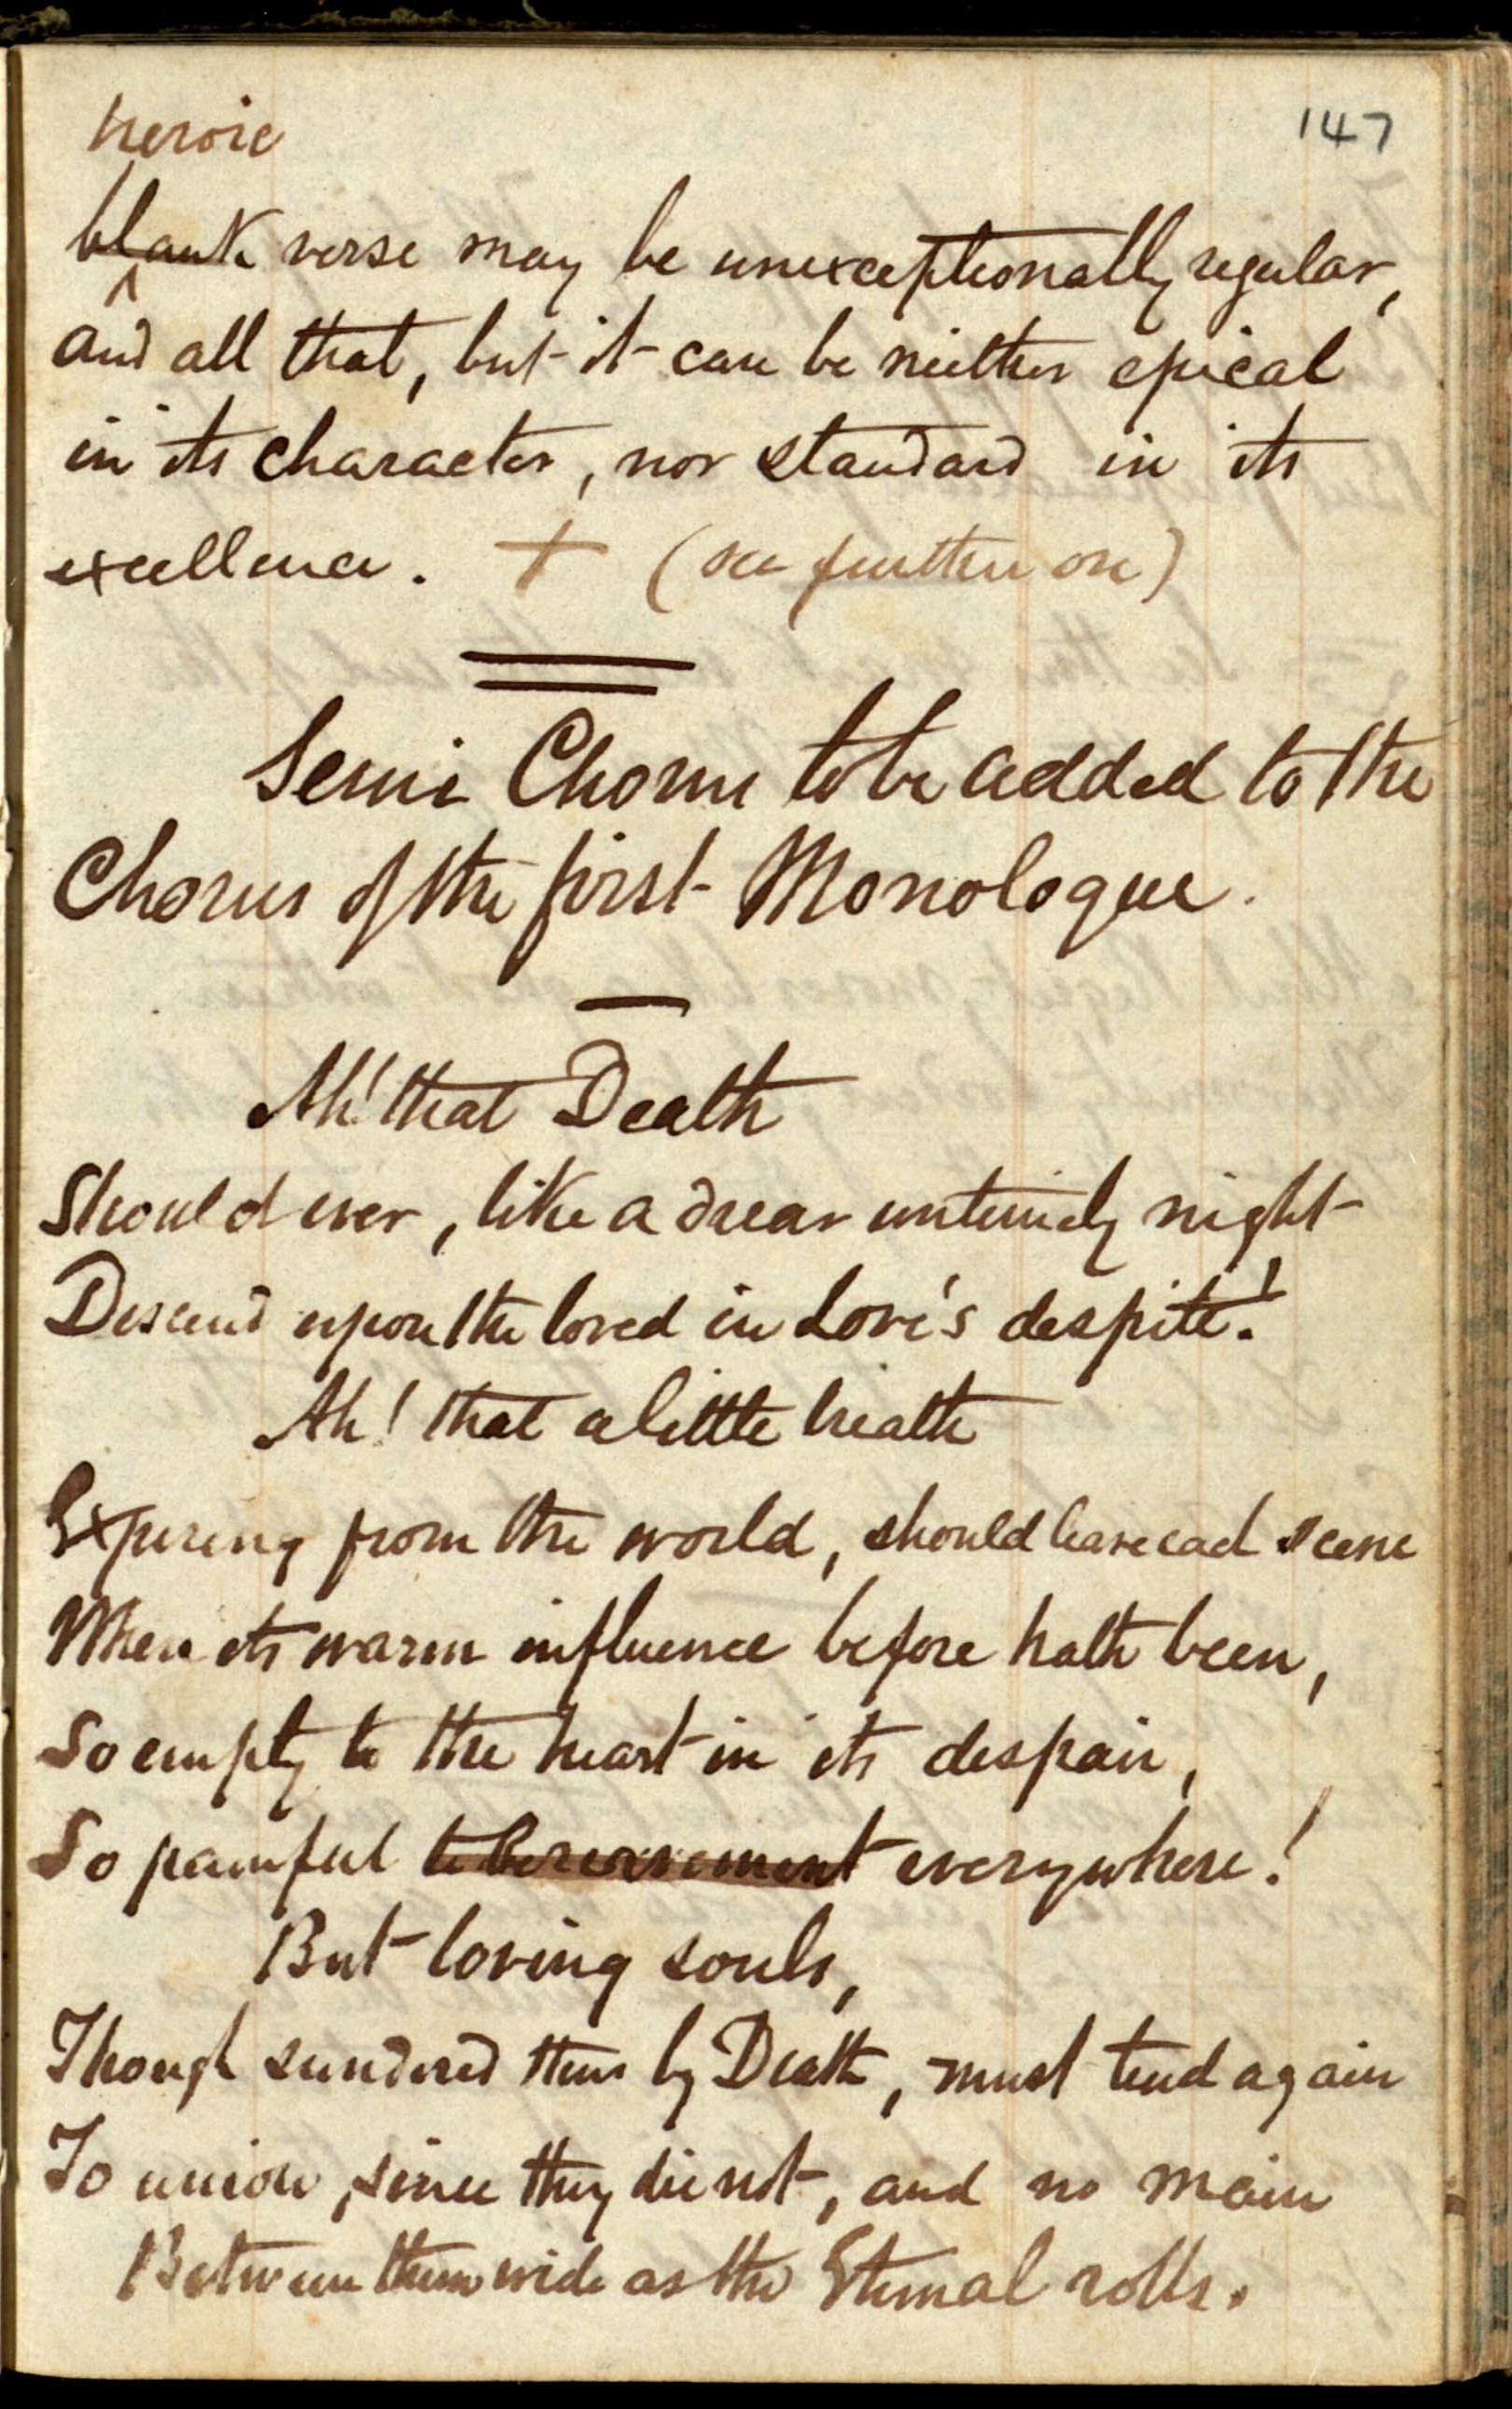 147
heroic
blank verse may be unexceptionally regular,
and all that, but it can be neither epical
in its character, nor standard in its
excellence. + (see further on)
Semi Chorus to be added to the
Chorus of the first Monologue.
Ah! that Death
Should ever, like a drear untimely night
Descend upon the loved in Love's despite!
Ah! that a little breath
Expiring from the world, should leave each scene
Where its warm influence before hath been,
So empty to the heart in its despair,
So painful to bereavement everywhere!
But loving souls,
Though sundered thus by Death, must tend again
To union, since they die not, and no main
Between them wide as the Eternal rolls.